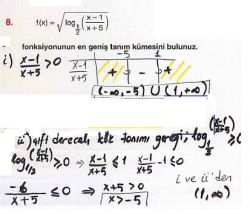 8. f(x) = √(log_{1/2}((x-1)/(x+5)))
fonksiyonunun en geniş tanım kümesini bulunuz.
i) (x-1)/(x+5) > 0
(x-1)/(x+5) -5 1 + - +
(-∞,-5) ∪ (1,+∞)
ii) çift dereceli kök tanımı gereği, log_{1/2}((x-1)/(x+5)) ≥ 0
log_{1/2}((x-1)/(x+5)) ≥ 0 ⇒ (x-1)/(x+5) ≤ 1 (x-1)/(x+5) - 1 ≤ 0
-6/(x+5) ≤ 0 ⇒ x+5 > 0
x > -5
i ve ii'den
(1,∞)